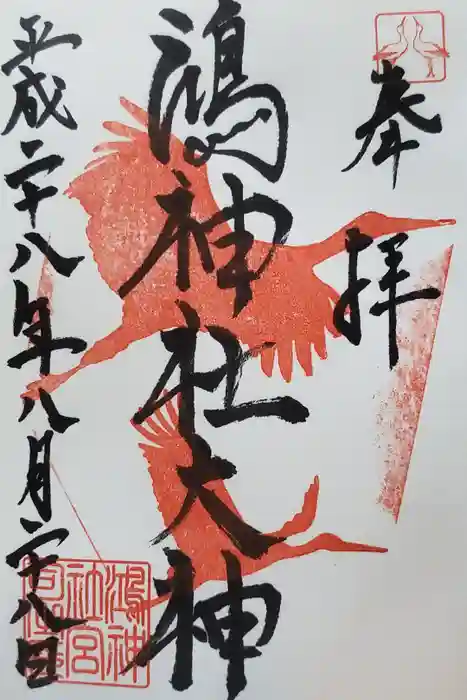 奉拝
鴻神社大神
平成二十八年八月二十八日
鴻神
社宮
司印